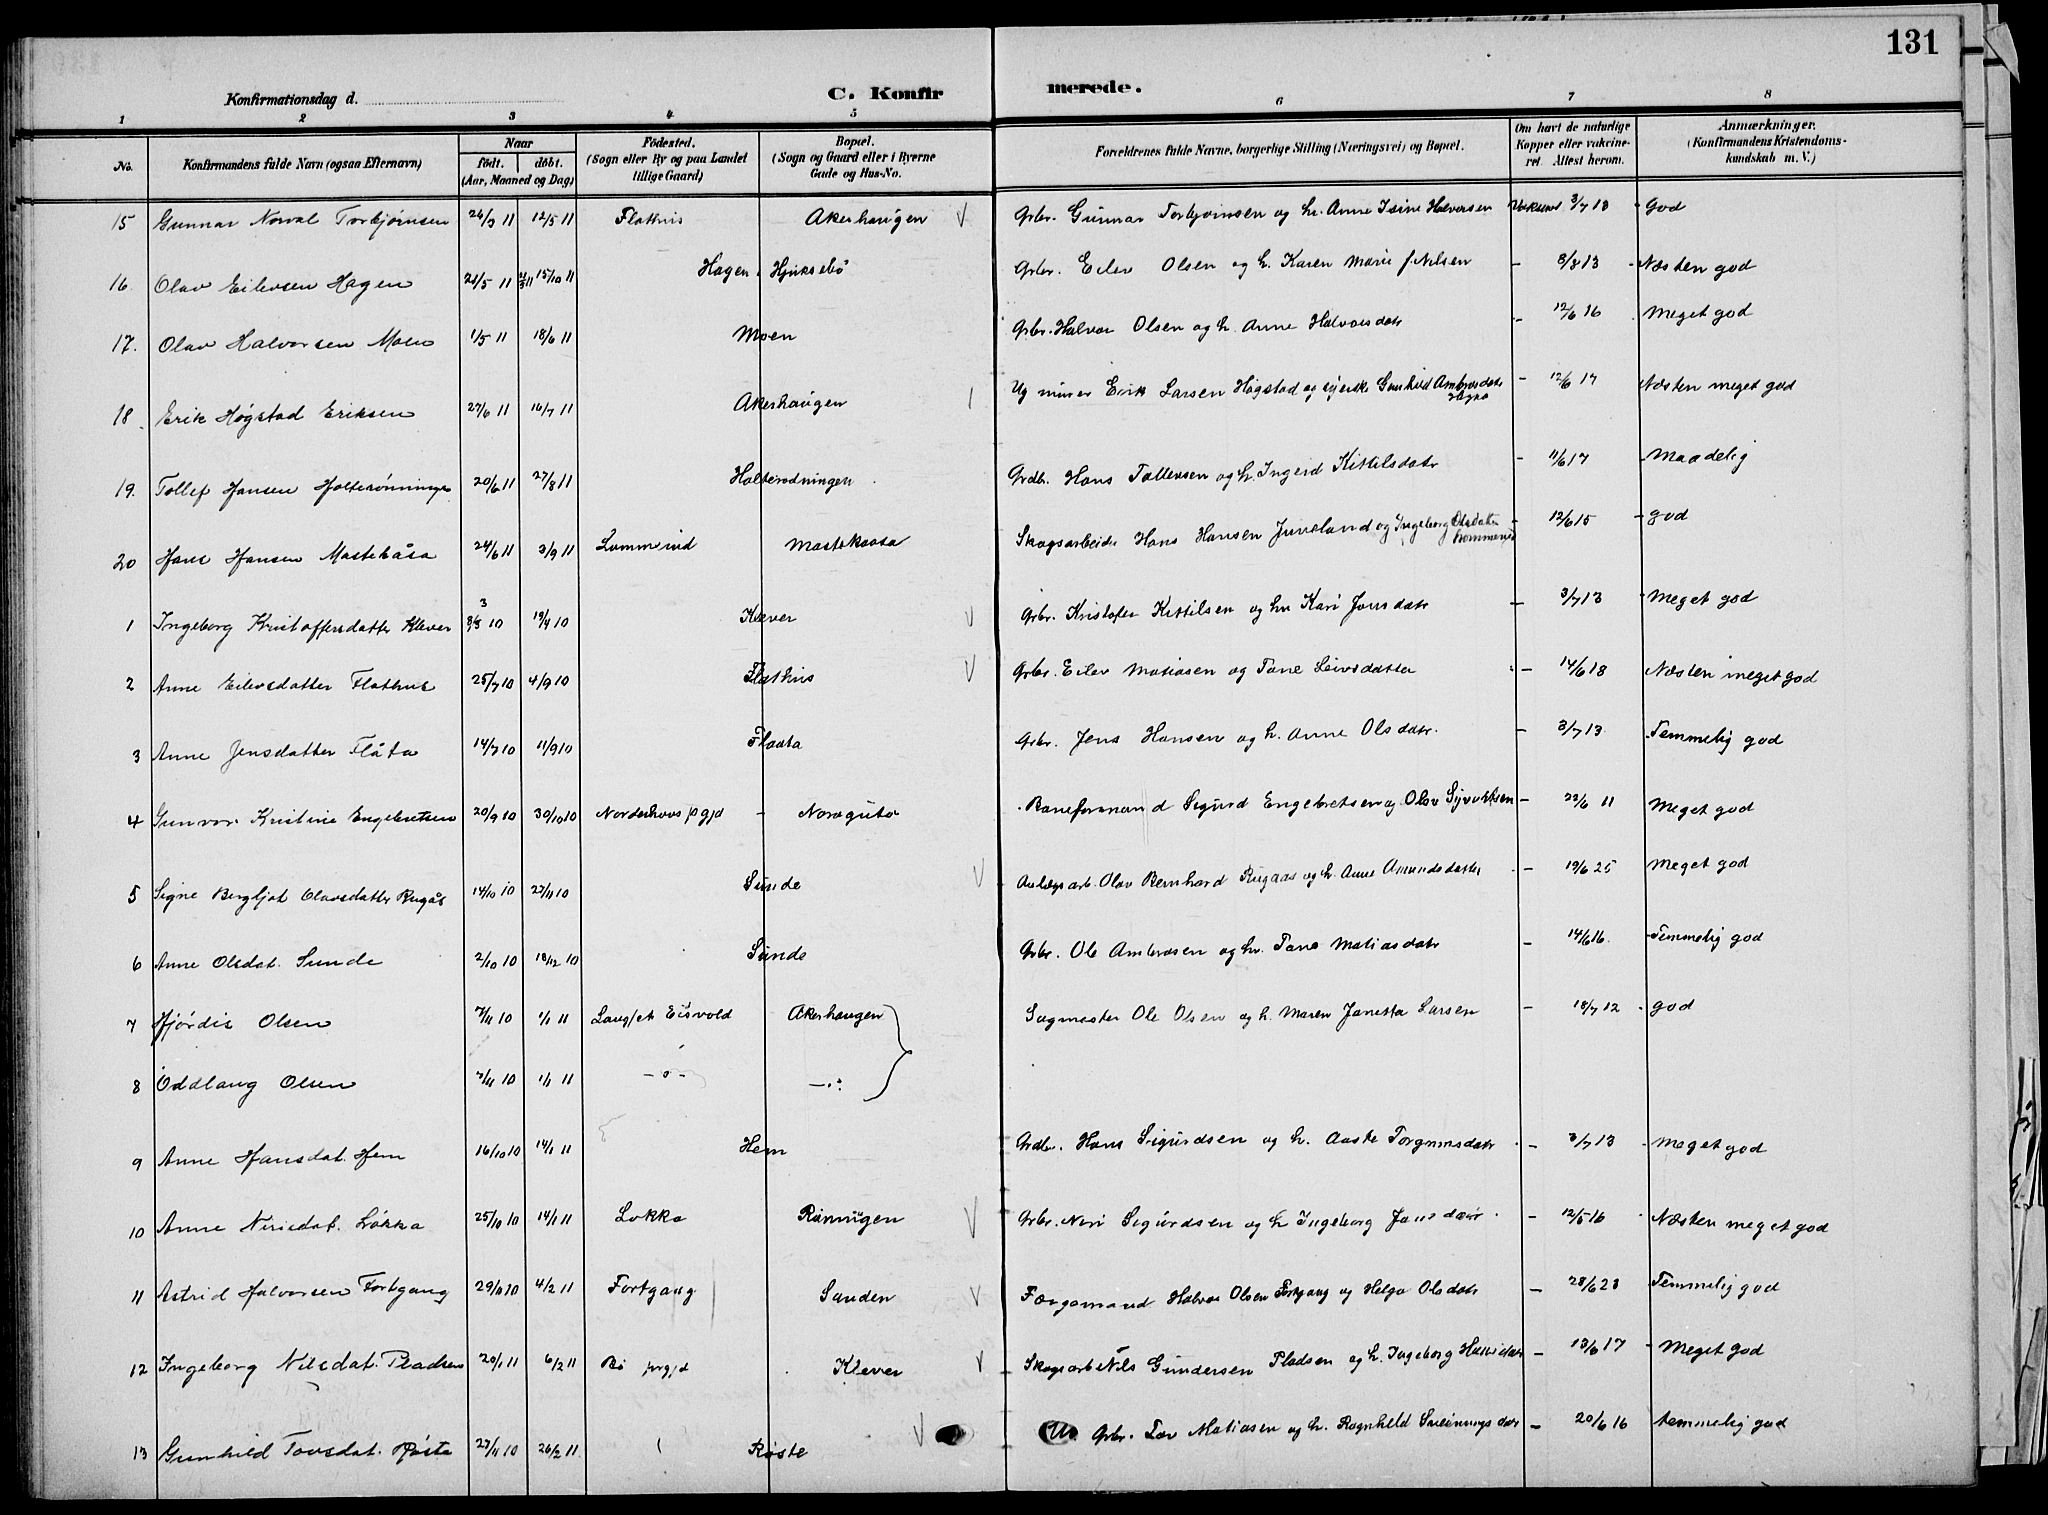 131
Konfirmationsdag d.
C. Konfirmerede.
1 2 3 4 5 6 7 8
No. Konfirmandens fulde Navn (ogsaa Efternavn) Naar födt. döbt. (Aar, Maaned og Dag) Födested. (Sogn eller By og paa Landet tillige Gaard) Bopæl. (Sogn og Gaard eller i Byerne Gade og Hus-No. Forældrenes fulde Navne, borgerlige Stilling (Næringsvei) og Bopæl. Om havt de naturlige Kopper eller vakcineret. Attest herom. Anmærkninger. (Konfirmandens Kristendomskundskab m. V.)
15 Gunnar Norval Torbjørnsen 24/3 11 12/5 11 Flathus Akerhaugen V Grbr. Gunnar Torbjørnsen og h. Anne Isine Halvorsen 3/7 13 God
16 Olav Eilevsen Hagen 21/5 11 15/10 11 Hagen, Hjuksebö Grbr. Eilev Olsen og h. Karen Marie f. Nilsen - 8/8 13 Næsten god
17. Olav Halvorsen Moen 1/5 11 18/6 11 Moen Grbr. Halvor Olsen og h. Anne Halvorsdatr - 12/6 16 Meget god
18 Erik Høgstad Eriksen 27/6 11 16/7 11 Akerhaugen Erik Larsen Høgstad og Gunhild Ambrosdatr - 12/6 17 Næsten meget god
19. Tollef Hansen 20/6 11 27/8 11 Grdb. Hans Tollevsen og h. Ingerd Kittilsdatr - 11/6 17 Maadelig
20 Hans Hansen Mastekåsa 24/6 11 3/9 11 Mastekaasa Skogsarbeider Hans Hansen Juveland og Ingeborg Olsdatter - 12/6 15 god
1 Ingeborg Kristoffersdatter Klever 10 19/4 10 Klever V Grbr. Kristofer Kittilsen og hu Kari Jonsdatr - 3/7 13 Meget god
2 Anne Eilevsdatter Flathus 25/7 10 4/9 10 Flathus V Grbr. Eilev Matiasen og Tone Leivsdatter - 14/6 18 Næsten meget god
3 Anne Jensdatter Flåta 14/7 10 11/9 10 Flaata Grbr. Jens Hansen og h. Anne Olsdatr. - 3/7 13 Temmelig god
4 Gunvor Kristine Engebretsen 20/9 10 30/10 10 Norderhovs pgjd - Noragutu Baneformand Sigurd Engebretsen og Olav - 22/6 11 Meget god
5 Signe Bergljot Olavsdatter Rugås 14/10 10 27/11 10 Sunde V Anlægsarb. Olav Bernhard Rugaas og h. Anne Amundsdatter - 19/6 25 Meget god
6 Anne Olsdat. Sunde 2/10 10 18/12 10 Sunde Grbr. Ole Ambrosen og h. Tone Matiasdatr - 14/6 16 Temmelig god
7 Hjördis Olsen 7/11 10 1/1 11 Eidsvold Akerhaugen Sagmester Ole Olsen og h. Maren Janetta Larsen - 18/7 12 god
8 Oddlaug Olsen 7/11 10 1/1 11 -"- -"-
9 Anne Hansdat. Hem 16/10 10 14/1 11 Hem Grdbr. Hans Sigurdsen og h. Aaste Torgrimsdatr - 3/7 13 Meget god
10 Anne Nirisdat. Lökka 25/10 10 14/1 11 Løkka Rønningen V Grbr. Neri Sigurdsen og h Ingeborg Jonsdatr - 12/5 16 Næsten meget god
11 Astrid Halvorsen Fortgang 29/10 10 4/2 11 Fortgang Sanden V Færgemand Halvor Olsen Fortgang og Helga Olsdatr - 28/6 23 Temmelig god
12 Ingeborg Nilsdat. Pladsen 20/1 11 6/2 11 Bö prgjd Klever V Skogsarb Nils Gundersen Pladsen og h. Ingeborg - 13/6 17 Meget god
13 Gunhild Tovsdat. Røste 27/11 10 26/2 11 Røste V Grbr. Tov Matiasen og h. Ragnhild Sveinungsdatr - 20/6 16 temmelig god